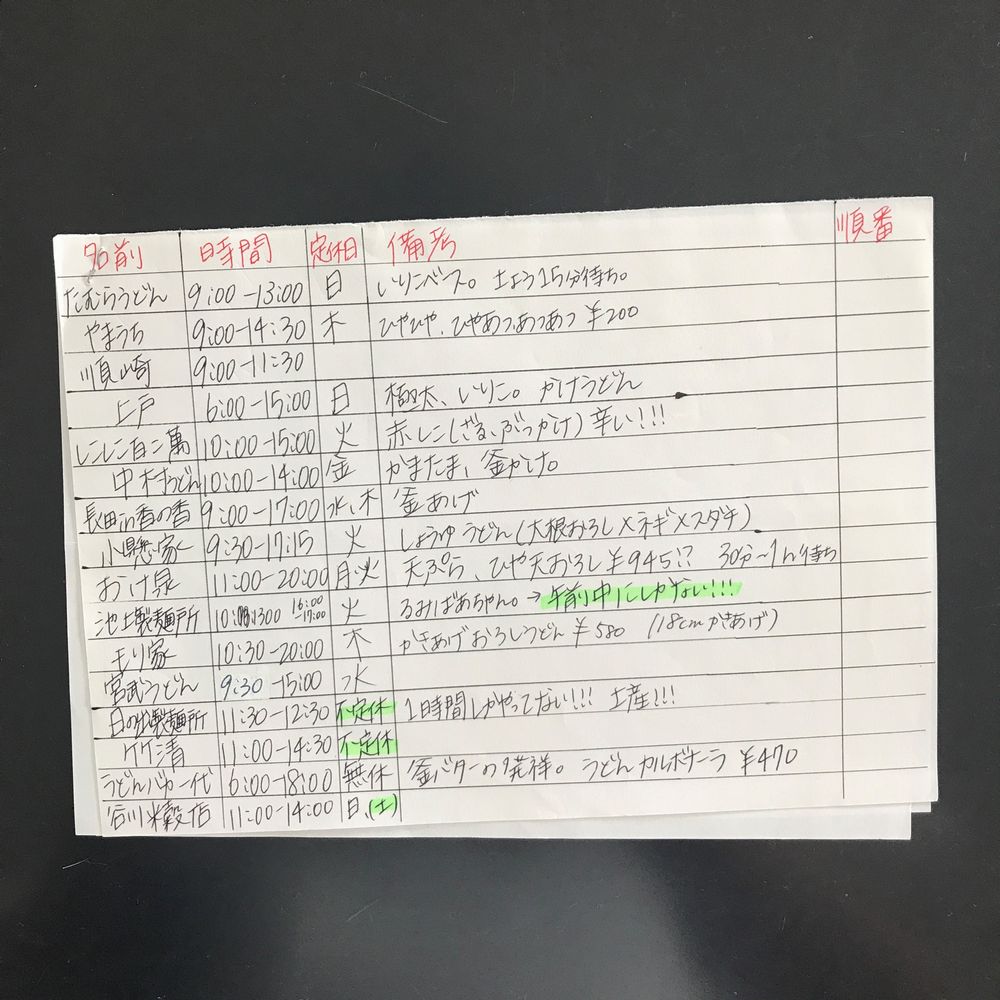 名前 時間 定休日 備考 順番
たむらうどん 9:00-13:00 日 いりこベース。 土よう15分待ち。
やまうち 9:00-14:30 木 ひやひや、ひやあつ、あつあつ ¥200
順崎 9:00-11:30
上戸 6:00-15:00 日 極太、いりこ。 かけうどん
こんこ百二萬 10:00-15:00 火 赤レこ(ざる、ぶっかけ)辛い!!!
中村うどん 10:00-14:00 金 かまたま、釜かけ。
長田in香の香 9:00-17:00 水、木 釜あげ
小懸家 9:30-17:15 火 しょうゆうどん(大根おろし×ネギ×スダチ)
おか泉 11:00-20:00 月・火 天ぷら、ひや天おろし ¥945!? 30分~1h待ち
池上製麺所 16:00-17:00 火 るみばあちゃん。→午前中にしかない!!!
もり家 10:30-20:00 木 かきあげおろしうどん ¥580 (18cmかきあげ)
宮武うどん 9:30-15:00 水
日の出製麺所 11:30-12:30 不定休 1時間しかやってない!!! 土産!!!
竹清 11:00-14:30 不定休
うどんバカ一代 6:00-18:00 無休 釜バターの発祥。 うどんカルボナーラ ¥470
谷川米穀店 11:00-14:00 日、(土)